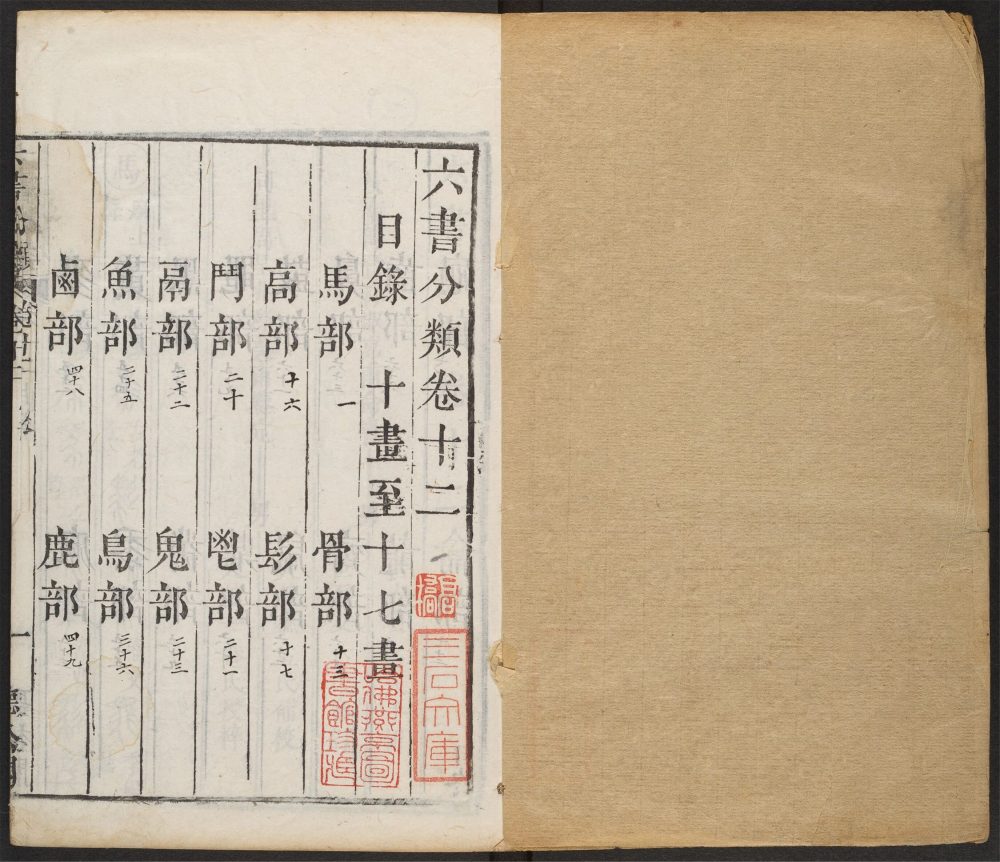 六書分類卷十二
目錄 十畫至十七畫
馬部 一 骨部 十三
高部 十六 髟部 十七
鬥部 二十 鬯部 二十一
鬲部 二十二 鬼部 二十三
魚部 二十五 鳥部 三十六
鹵部 四十八 鹿部 四十九
三石文庫
哈佛燕京
書館珍